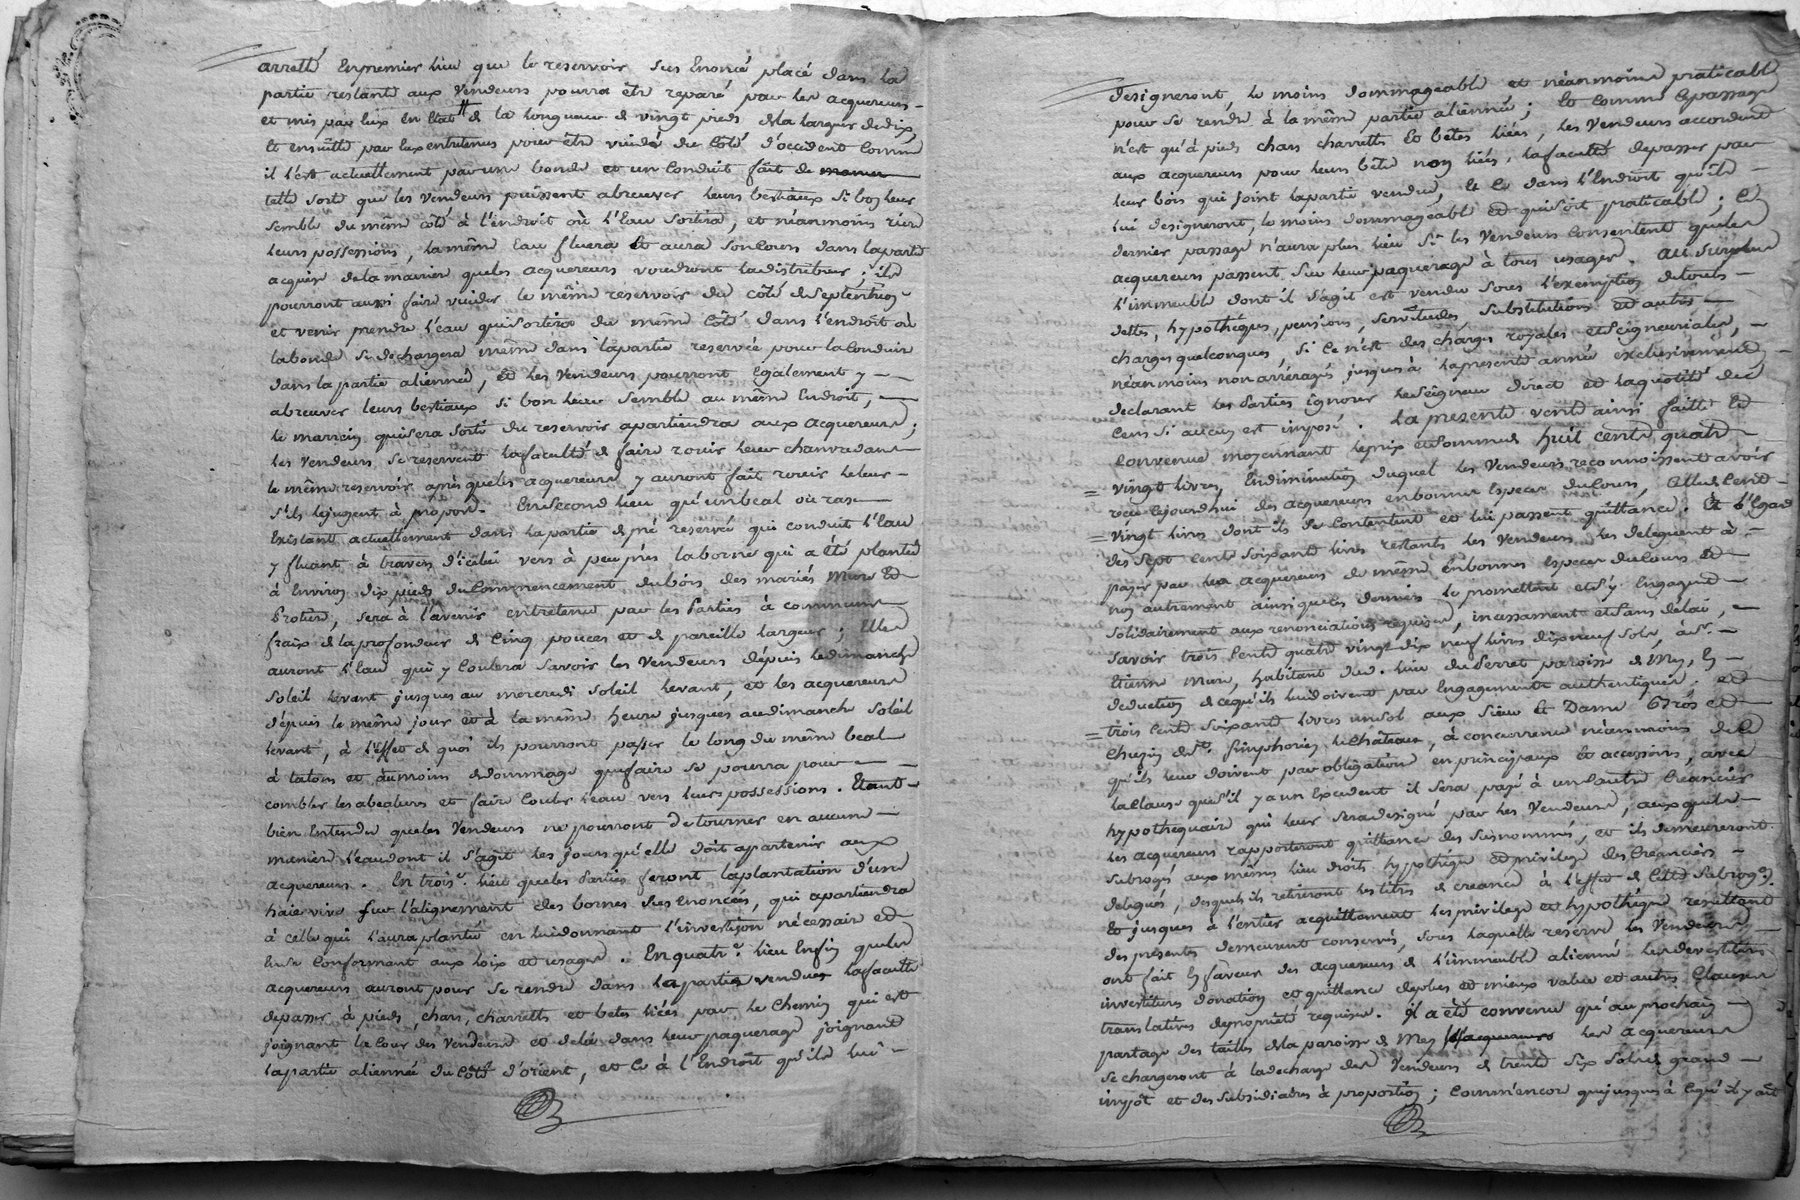 arretté En premier lieu que le reservoir sus Enoncé placé dans la
partie restante aux Vendeurs pourra être reparé par les acquereurs
et mis par Eux En Etat de la longueur de vingt pieds de la largeur de dix,
Et ensuitte par Eux entretenus pour être vuidé du Côté d'occident Comme
il l'est actuellement par une bonde et un Conduit fait de
telle sorte que les Vendeurs puissent abreuver leurs bestiaux Si bon leur
semble du même côté à l'endroit où l'Eau sortira, et néanmoins
leurs possessions, la même Eau fluera Et aura son Cours dans la partie
acquise de la maniere que les acquereurs voudront la distribuer; ils
pourront aussi faire vuider le même reservoir du côté de Septentrion
et venir prendre l'eau qui Sortira du même Côté dans l'endroit où
la bonde se dechargera même dans la partie reservée pour la Conduire
dans la partie alienneé, et les Vendeurs pourront Egalement y
abreuver leurs bestiaux si bon leur semble au même Endroit,
le marrein qui sera sorti du reservoir apartiendra aux acquereurs;
les Vendeurs se reservent la faculté de faire rouir leur chanvre dans
le même reservoir après que les acquereurs y auront fait rouir le leur
s'ils le jugent à propos. En second lieu qu'un beal ou rase
Existant actuellement dans la partie de pré reservée qui conduit l'Eau
y fluant à travers d'icelui vers à peu près la borne qui a été plantée
à Environ dix pieds du Commencement du bois des mariés Mure Et
Protiere, sera à l'avenir entretenu par les Parties à communs
fraix de la profondeur de Cinq pouces et de pareille largeur; Elles
auront l'Eau qui y Coulera savoir les Vendeurs dépuis le dimanche
Soleil levant jusques au mercredi Soleil levant, et les acquereurs
dépuis le même jour et à la même heure jusques au dimanche Soleil
levant, à l'Effet de quoi ils pourront passer le long du même beal
à talons et au moins de dommage que faire se pourra pour
combler les abealeurs et faire Couler l'eau vers leurs possessions. Etant
bien Entendu que les Vendeurs ne pourront détourner en aucune
maniere l'eau dont il s'agit les jours qu'elle doit apartenir aux
acquereurs. En troise. lieu que les Parties feront la plantation d'une
haie vive sur l'alignement des bornes sus Enoncées, qui apartiendra
à celle qui l'aura plantée en lui donnant l'investison nécessaire et
en se Conformant aux loix et usages. En quatre. lieu Enfin que les
acquereurs auront pour se rendre dans la partie vendue la faculté
de passer à pieds, chars, charrettes et betes liées par le Chemin qui est
joignant la Cour des Vendeurs et delà dans leur paquerage joignant
la partie aliennée du Côté d'orient, et Ce à l'Endroit qu'ils lui
designeront, le moins dommageable et néanmoins praticable
pour se rendre à la même partie aliennée; Et Comme le passage
n'est qu'à pieds chars charrettes Et bêtes liées, les Vendeurs accordent
aux acquereurs pour leurs bête non liées, la faculté de passer par
leur bois qui joint la partie vendue, Et Ce dans l'Endroit qu'ils
lui designeront, le moins dommageable et qui soit praticable; Ce
dernier passage n'aura plus lieu Si les Vendeurs Consentent que les
acquereurs passent Sur leur paquerage à tous usages. Au Surplus
l'immeuble dont il s'agit est vendu sous l'exemption de toutes
dettes, hypothéques, pensions, servitudes, substitutions et autres
charges quelconques, si Ce n'est des charges royales et Seigneuriales,
néanmoins non arréragés jusques à la presente année exclusivement,
declarant les Parties ignorer le Seigneur direct et la quotité des
Cens si aucun est imposé. La presente vente ainsi faitte et
Convenue moyennant le prix et somme de huit cents quatre
vingt livres, En diminution duquel les Vendeurs reconnoissent avoir
reçu cejourdhui des acquereurs en bonnes Especes du Cours, Celle de Cent
vingt livres dont ils se Contentent et lui passent quittance. Et à l'Egard
des sept Cents soixante livres restants les Vendeurs les deleguent à
payer par les acquereurs de même En bonnes Especes du Cours et
non autrement ainsi que ces derniers le promettent et s'y Engagent
solidairement aux renonciations requises, incessament et sans délai,
Savoir trois Cents quatre vingt dix neuf livres dix neuf sols, à Sr.
Etienne Mure, habitant dud. lieu du Perret paroisse de Mey, En
deduction de ce qu'ils lui doivent par Engagements authentiques; et
trois Cents soixante livres un sol aux Sieur Et Dame Gros et
Chuzin de St. Simphorien le Château, à concurrence néanmoins de Ce
qu'ils leur doivent par obligation en principaux Et accessoires, avec
la Clause que s'il y a un Excedent il sera payé à un autre Creancier
hypothéquaire qui leur sera designé par les Vendeurs, auxquels
les acquereurs rapporteront quittance des susnommés, et ils demeureront
subrogés aux mêmes lieu droits hypothéque et privilege des Creanciers
delegués, desquels ils retireront les titres de creance à l'effet de Cette Subrogon.
Et jusques à l'entier acquittement les privilege et hypothéque resultant
des présentes demeurent conservés, sous laquelle reserve les Vendeurs
ont fait En faveur des acquereurs de l'immeuble alienné les devestitures
investitures donation et quittance de plus et mieux value et autres Clauses
translatives de proprieté requises. Il a été convenu qu'au prochain
partage des tailles de la paroisse de Mey les acquereurs
se chargeront à la decharge des Vendeurs de trente six sols de grand
impôt et des subsidiaires à proportion; Comm'encor que jusques à Ce qu'il y ait